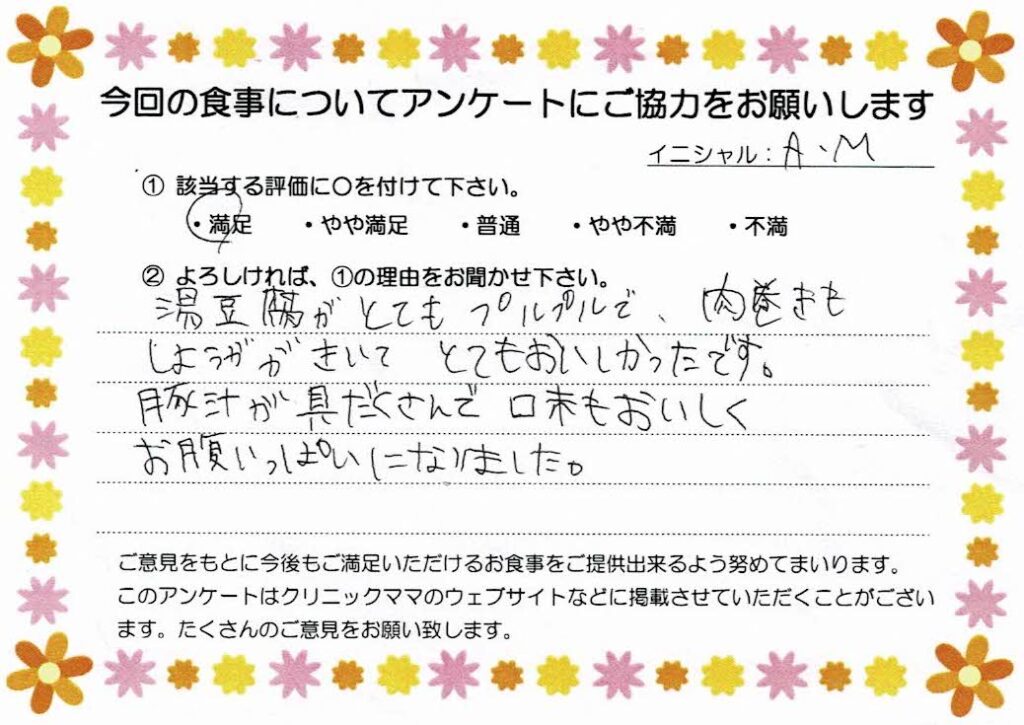 今回の食事についてアンケートにご協力をお願いします
イニシャル：A、M
① 該当する評価に〇を付けて下さい。
・満足 ・やや満足 ・普通 ・やや不満 ・不満
② よろしければ、①の理由をお聞かせ下さい。
湯豆腐がとてもプルプルで、肉巻きも
しょうががきいて とてもおいしかったです。
豚汁が具だくさんで 味もおいしく
お腹いっぱいになりました。
ご意見をもとに今後もご満足いただけるお食事をご提供出来るよう努めてまいります。
このアンケートはクリニックママのウェブサイトなどに掲載させていただくことがござい
ます。たくさんのご意見をお願い致します。